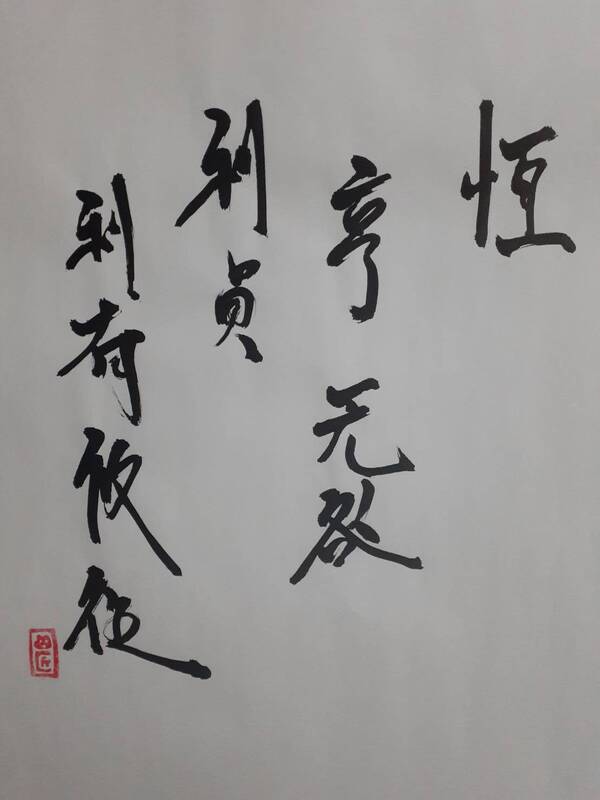 恒
亨 无咎
利貞
利有攸往